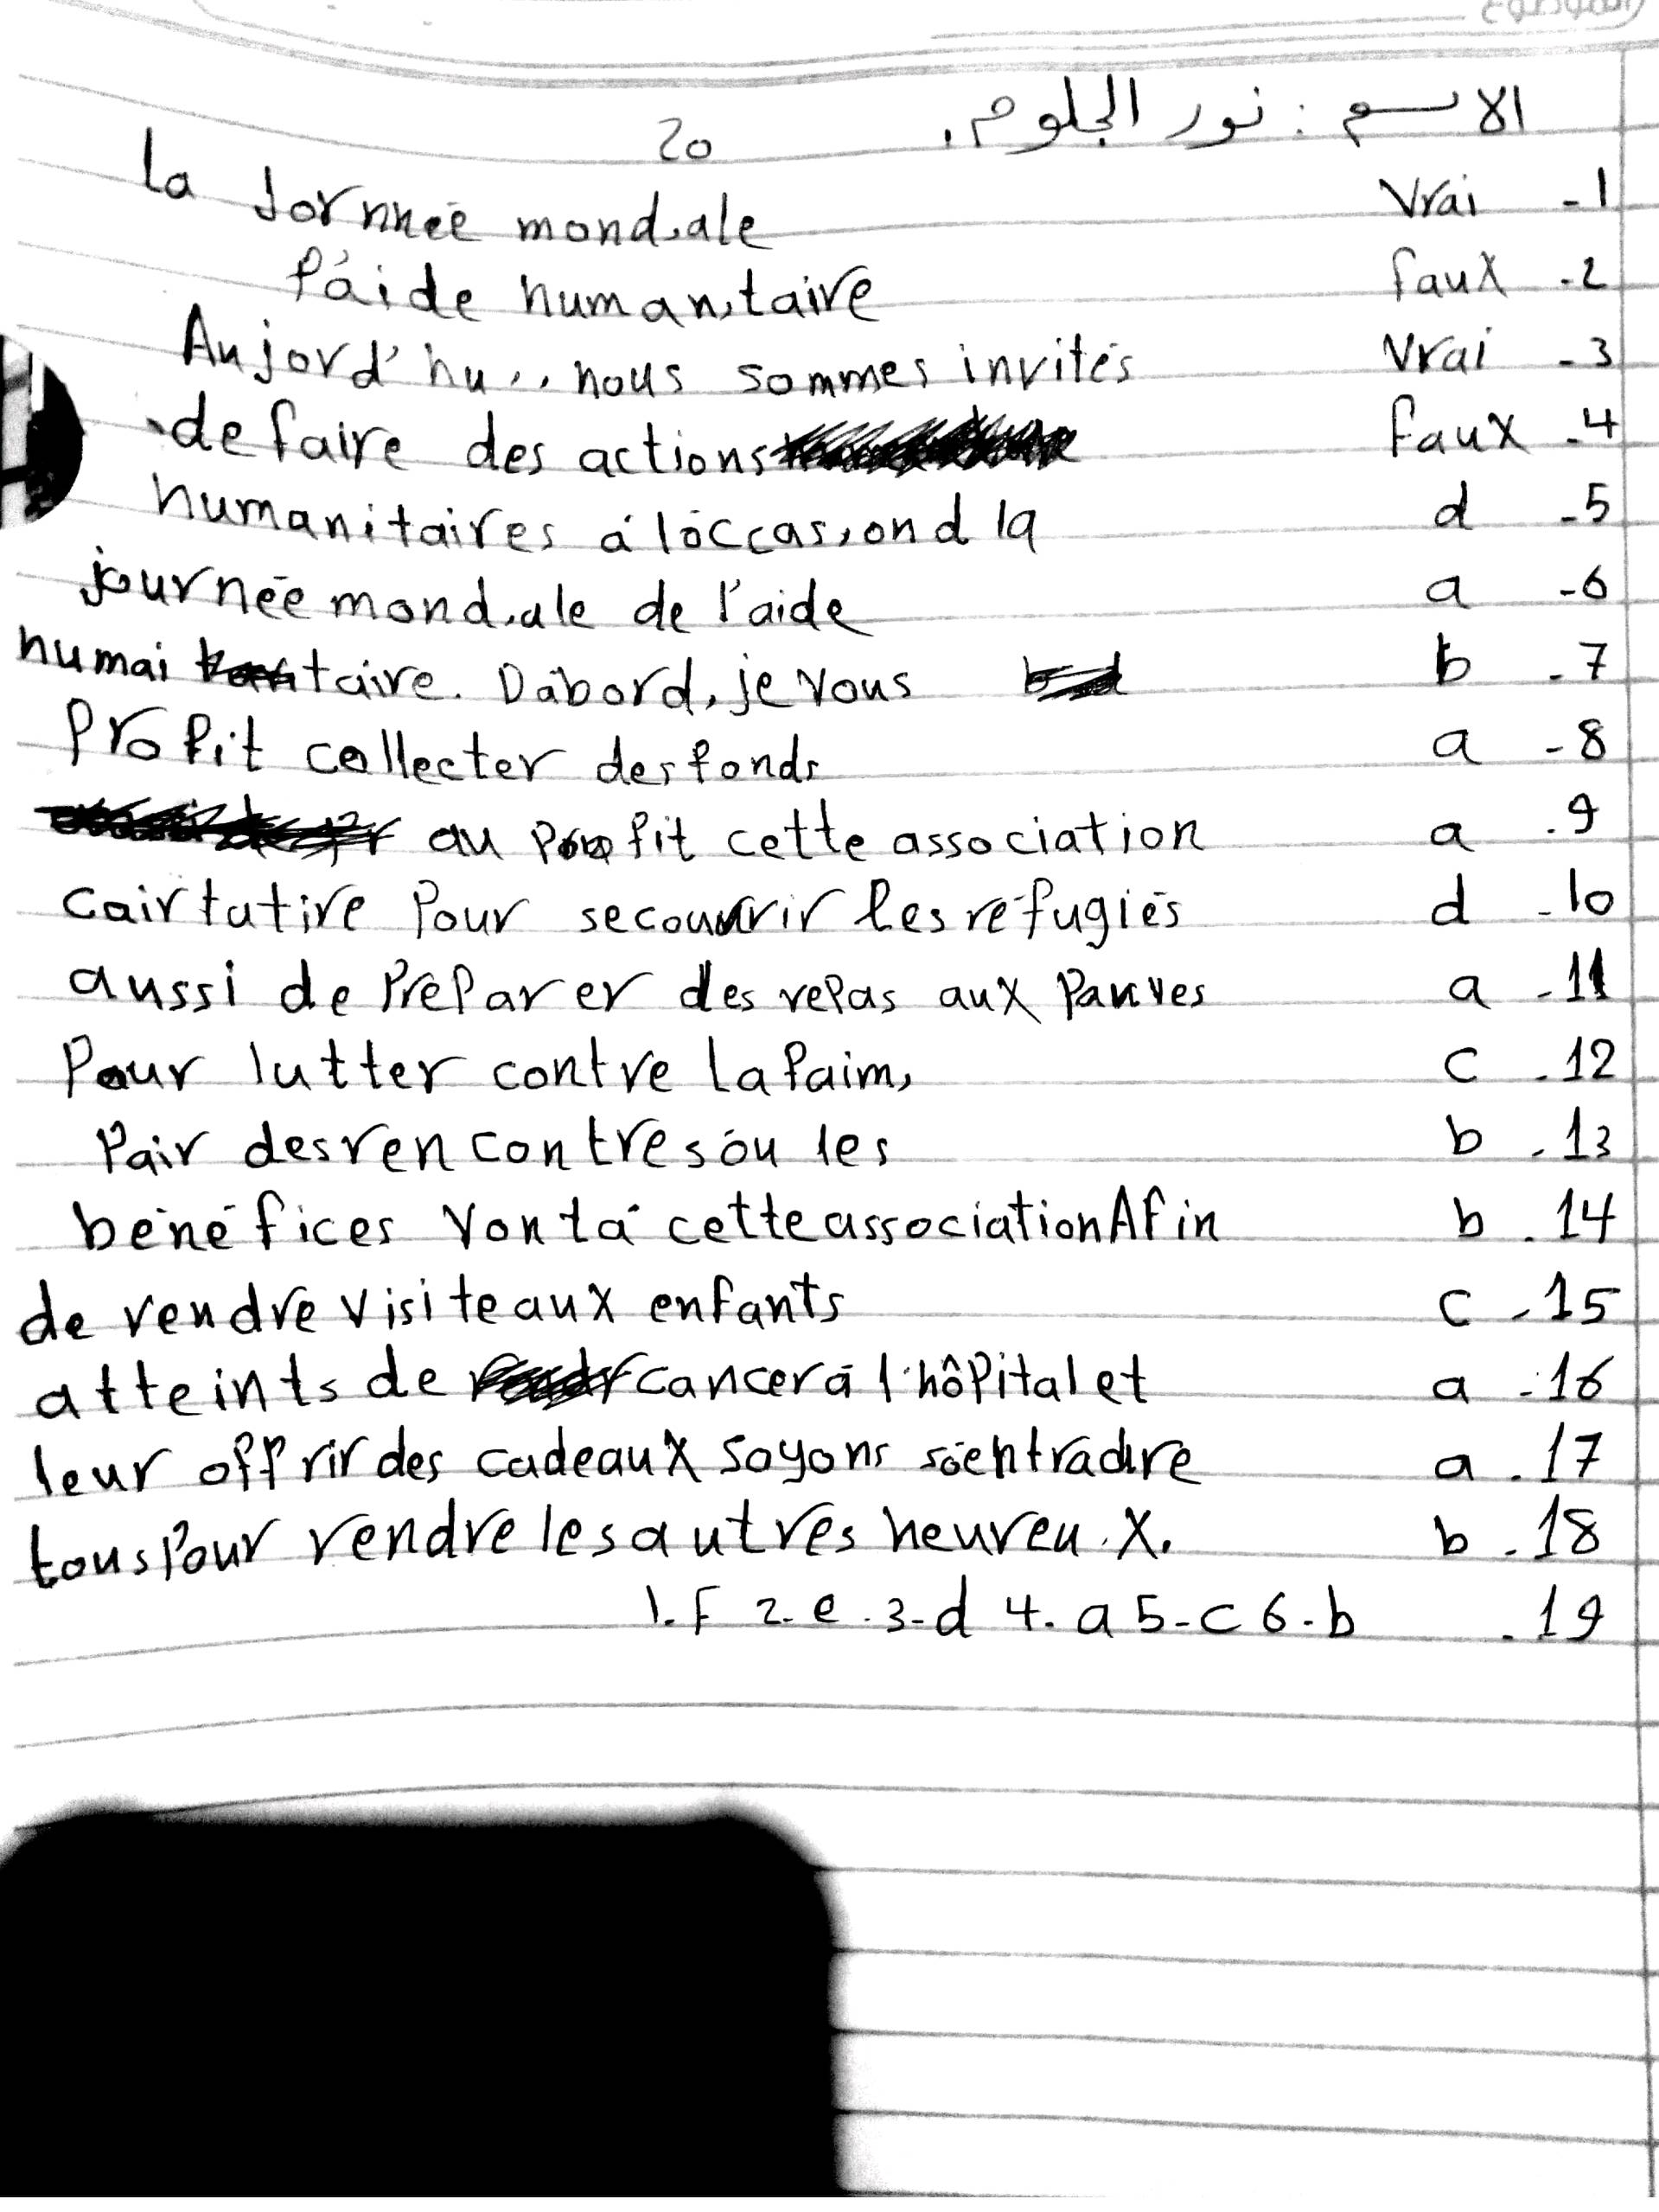 الموضوع
الاسم : نور الجلوم.
1- Vrai
2- faux
3- Vrai
4- faux
5- d
6- a
7- b
8- a
9- a
10- d
11- a
12- c
13- b
14- b
15- c
16- a
17- a
18- b
19- 1.F 2-e.3-d 4.a 5-c 6-b
20
la Jornneé mondiale
l'aide humanitaire
Aujord'hui, nous sommes invités
de faire des actions
humanitaires á l'occasiond la
journée mondiale de l'aide
humai taire. D'abord, je vous
Profit collecter des fonds
au Profit cette association
cairtative Pour secourir les réfugiés
aussi de Préparer des repas aux Pauves
Pour lutter contre la faim,
Pair des rencontres où les
bénéfices vont á cette association Afin
de rendre visite aux enfants
atteints de cancer á l'hôpital et
leur offrir des cadeaux soyons
tous Pour rendre les autres heureux.